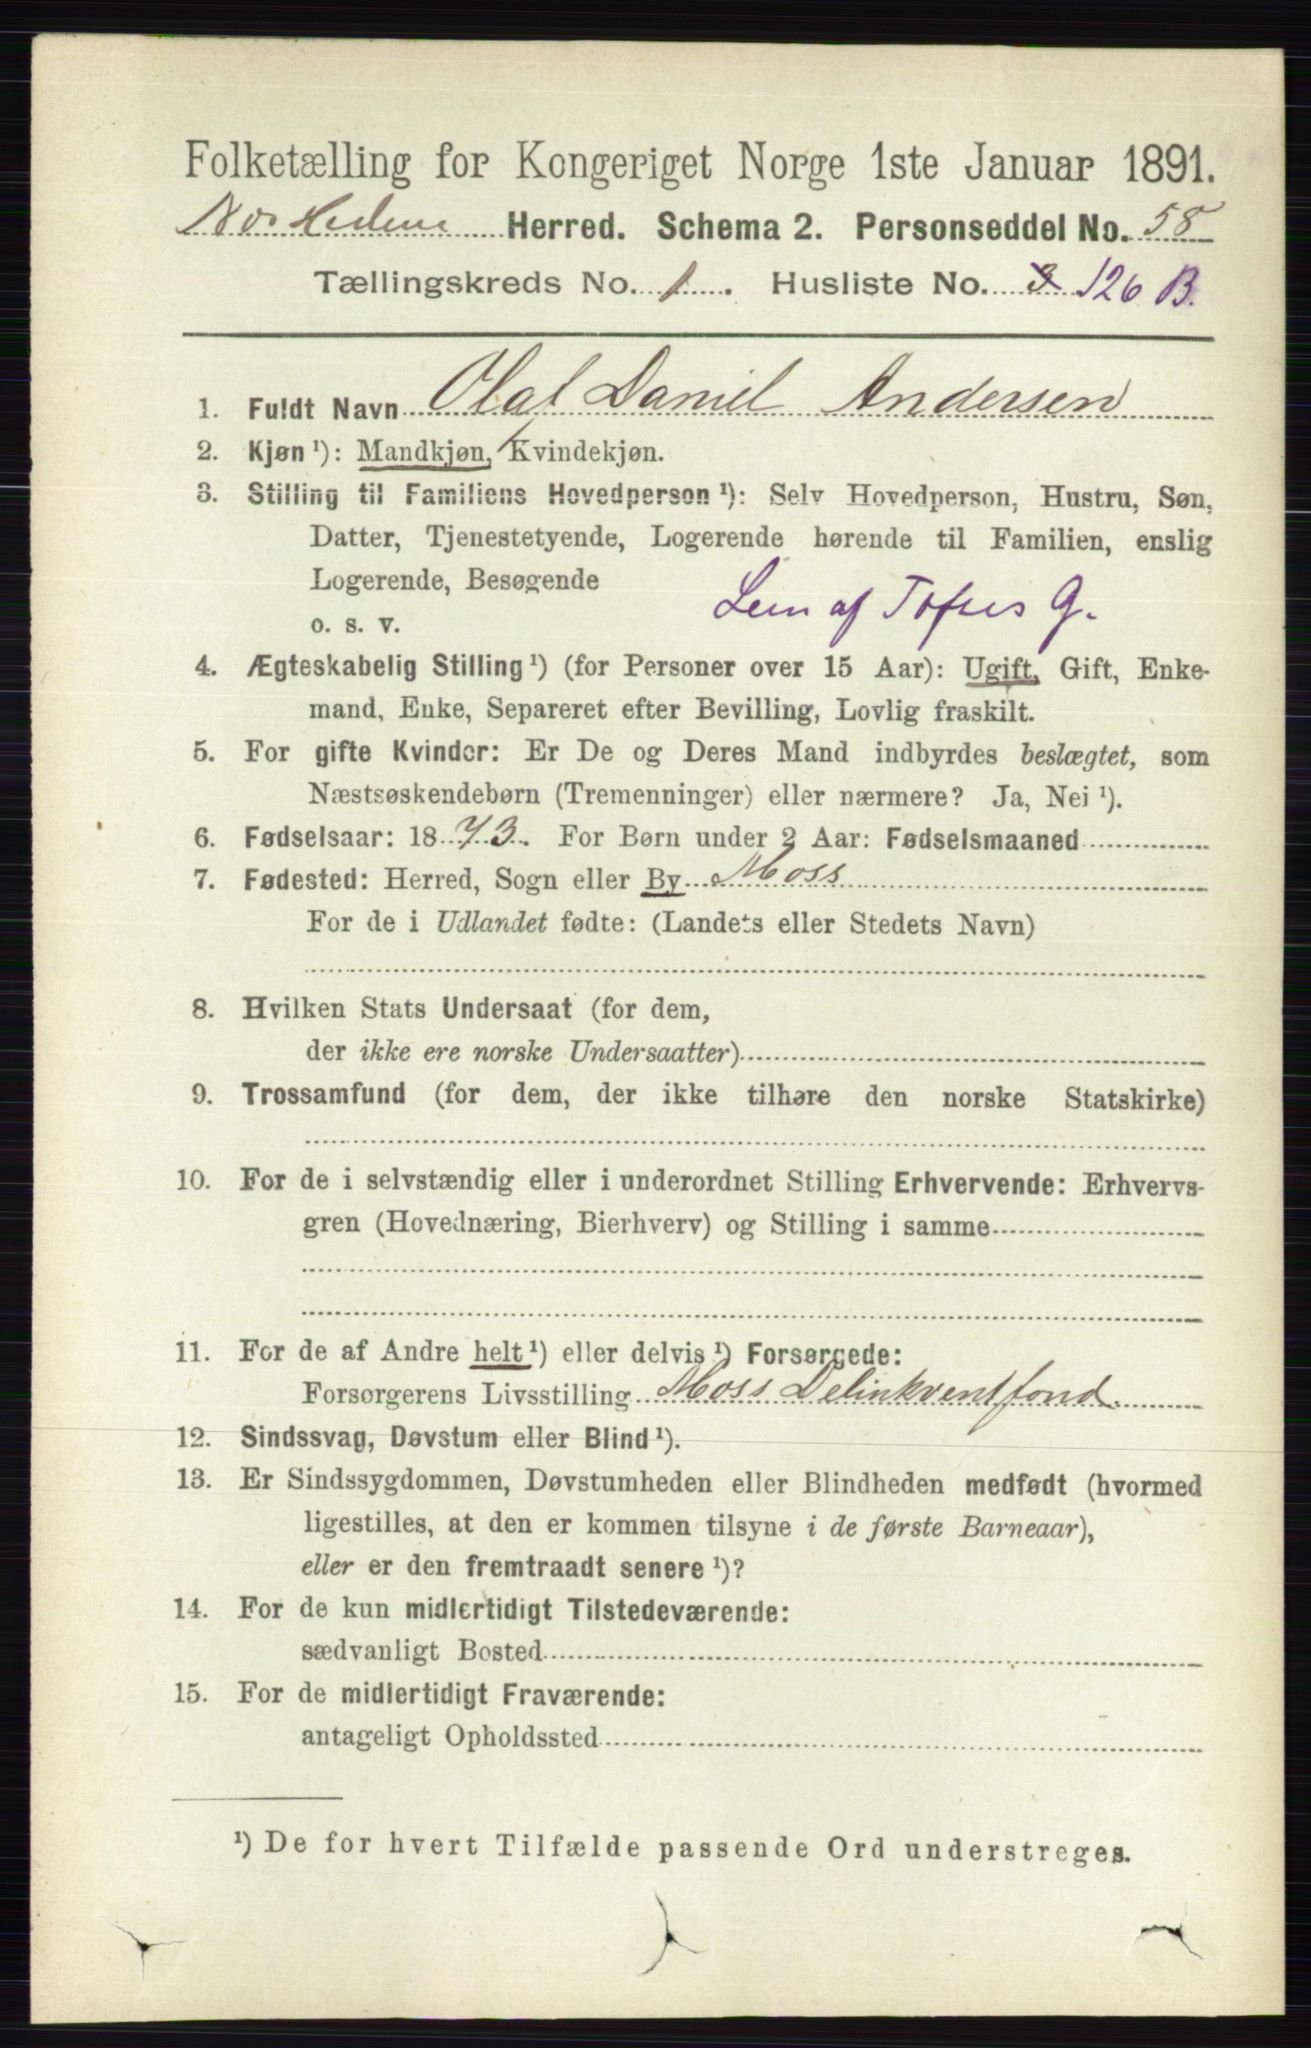 Folketælling for Kongeriget Norge 1ste Januar 1891.
Nes Hedem Herred. Schema 2. Personseddel No. 58
Tællingskreds No. 1. Husliste No. 3 126 B.
1. Fuldt Navn Olaf Daniel Andersen
2. Kjøn ¹): Mandkjøn, Kvindekjøn.
3. Stilling til Familiens Hovedperson ¹): Selv Hovedperson, Hustru, Søn,
Datter, Tjenestetyende, Logerende hørende til Familien, enslig
Logerende, Besøgende
o. s. v. Lem af Toftes G.
4. Ægteskabelig Stilling ¹) (for Personer over 15 Aar): Ugift, Gift, Enke-
mand, Enke, Separeret efter Bevilling, Lovlig fraskilt.
5. For gifte Kvinder: Er De og Deres Mand indbyrdes beslægtet, som
Næstsøskendebørn (Tremenninger) eller nærmere? Ja, Nei ¹).
6. Fødselsaar: 1873. For Børn under 2 Aar: Fødselsmaaned
7. Fødested: Herred, Sogn eller By Moss
For de i Udlandet fødte: (Landets eller Stedets Navn)
8. Hvilken Stats Undersaat (for dem,
der ikke ere norske Undersaatter)
9. Trossamfund (for dem, der ikke tilhøre den norske Statskirke)
10. For de i selvstændig eller i underordnet Stilling Erhvervende: Erhvervs-
gren (Hovednæring, Bierhverv) og Stilling i samme
11. For de af Andre helt ¹) eller delvis ¹) Forsørgede:
Forsørgerens Livsstilling Moss Delinkventfond.
12. Sindssvag, Døvstum eller Blind ¹).
13. Er Sindssygdommen, Døvstumheden eller Blindheden medfødt (hvormed
ligestilles, at den er kommen tilsyne i de første Barneaar),
eller er den fremtraadt senere ¹)?
14. For de kun midlertidigt Tilstedeværende:
sædvanligt Bosted
15. For de midlertidigt Fraværende:
antageligt Opholdssted
¹) De for hvert Tilfælde passende Ord understreges.